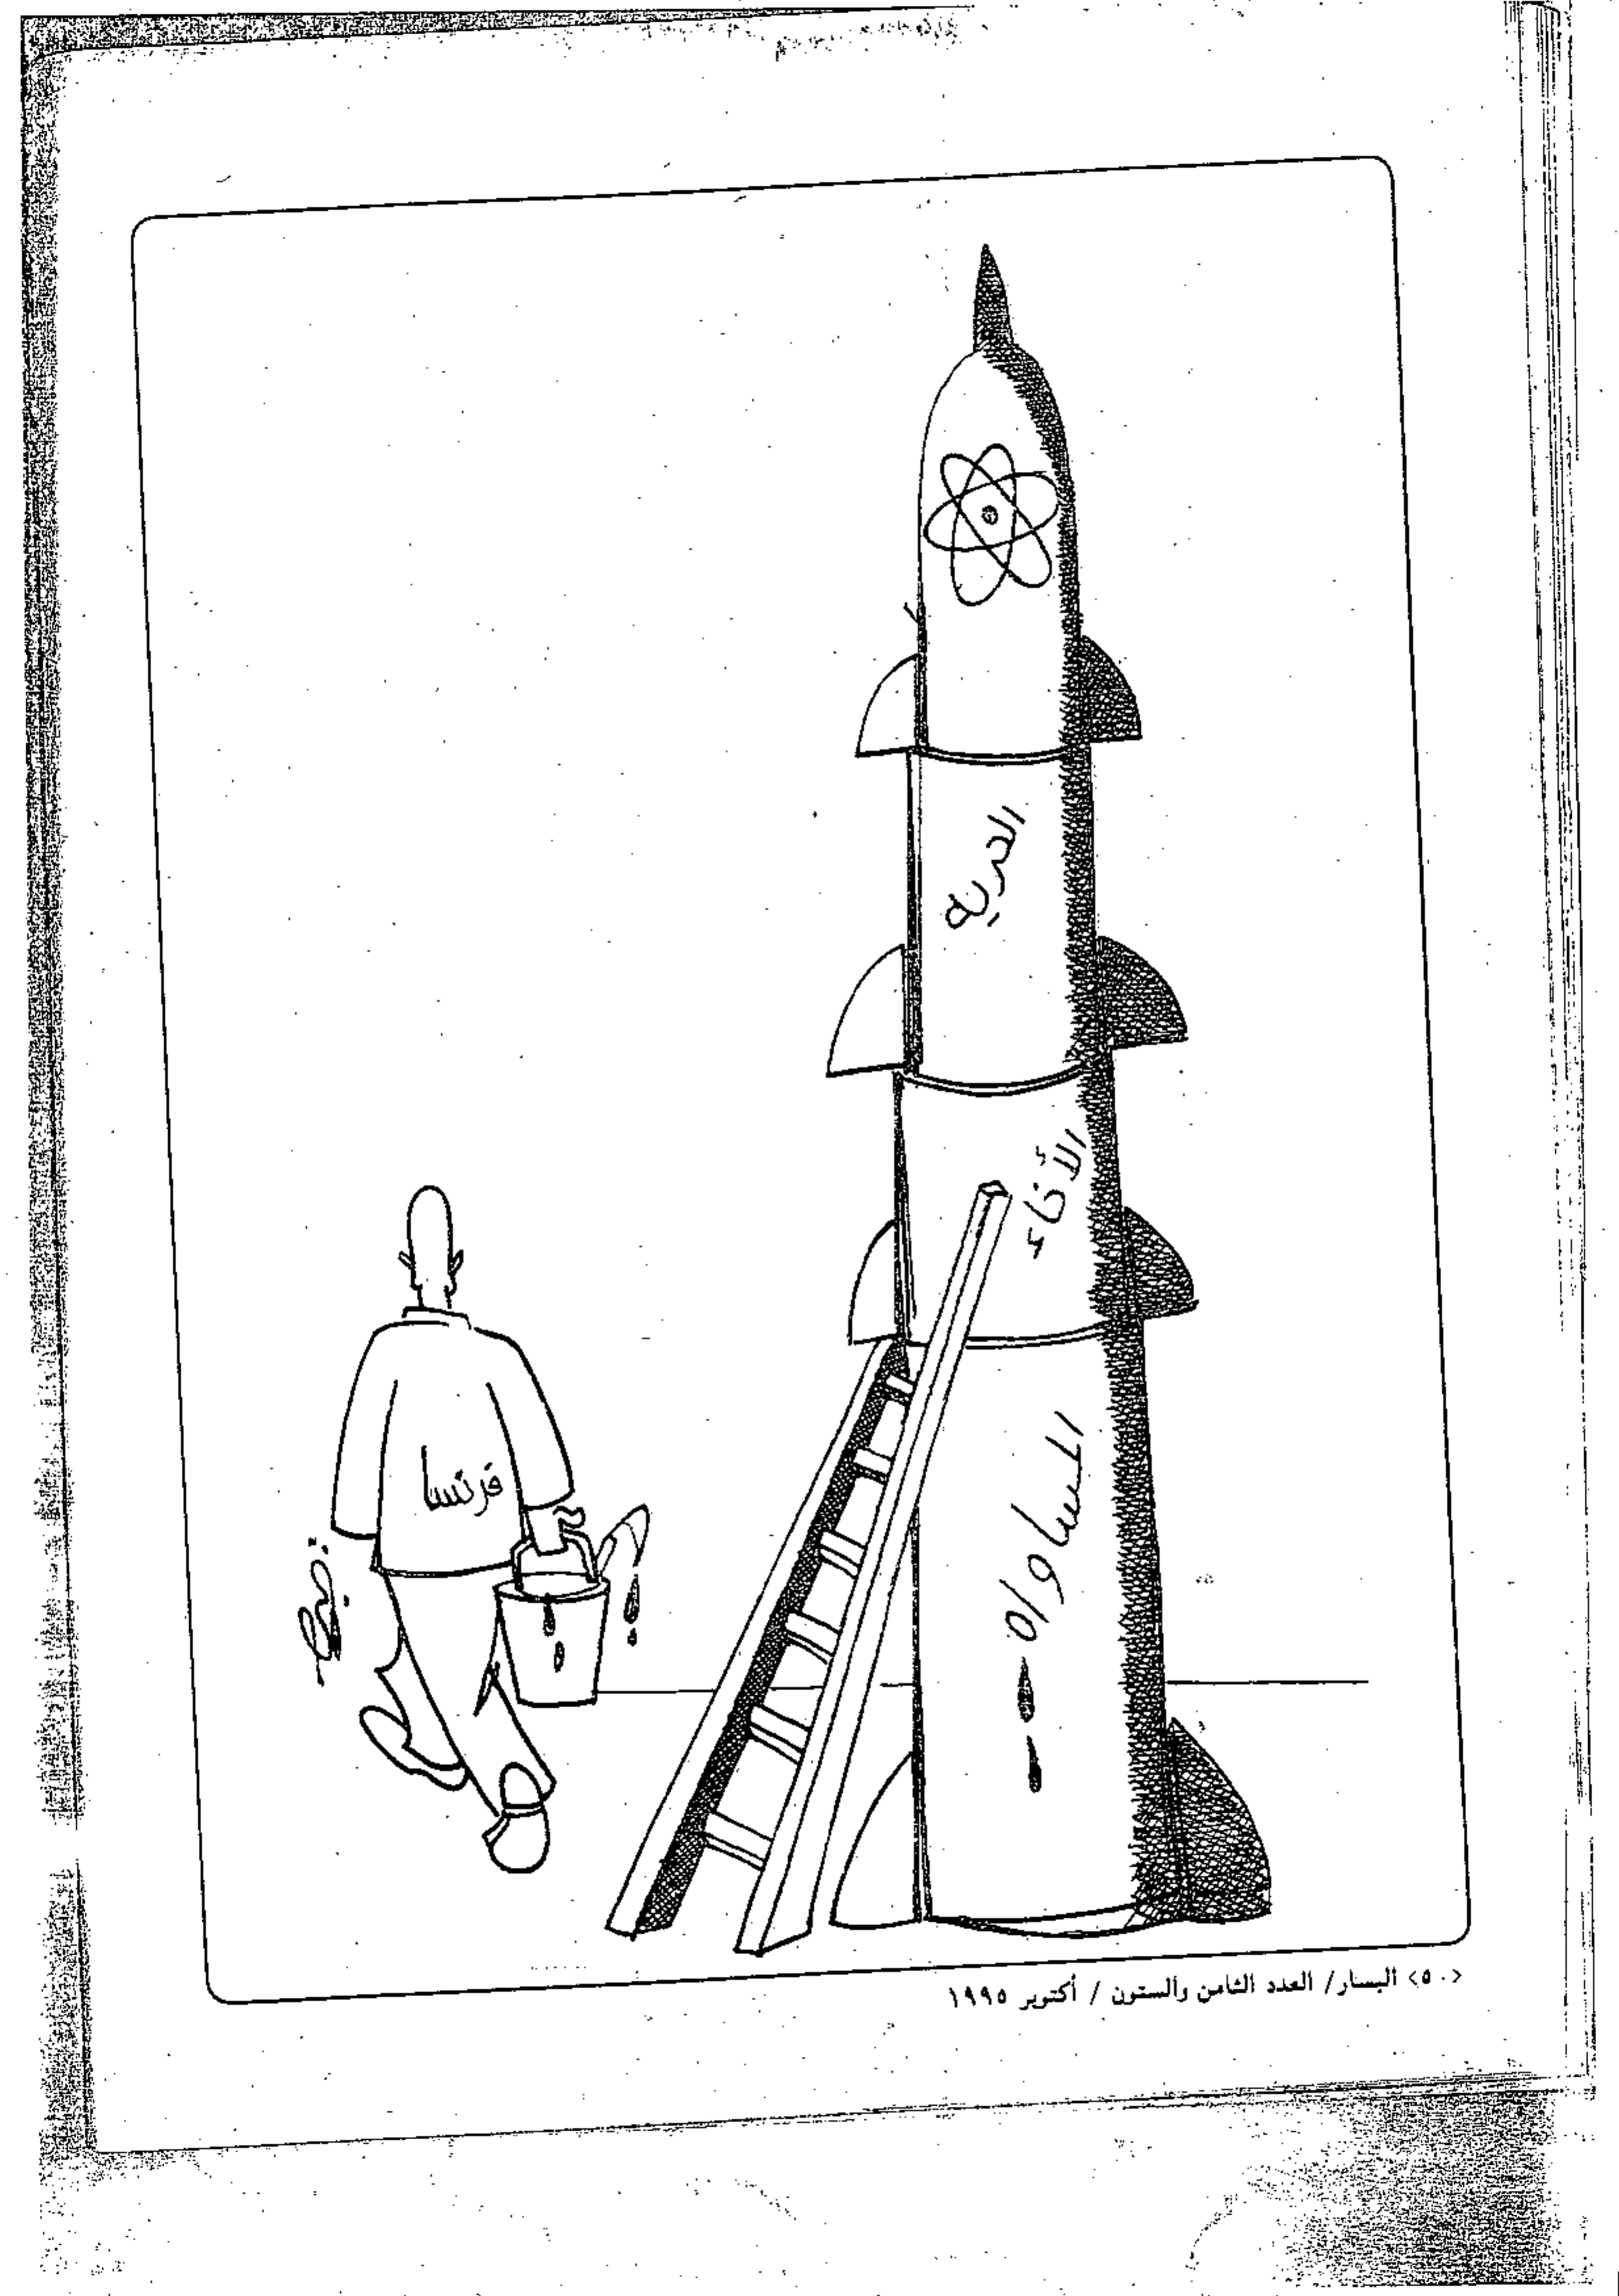 الحريه
الأخاء
المساواه
فرنسا
<٥٠> اليسار/ العدد الثامن والستون / أكتوبر ١٩٩٥